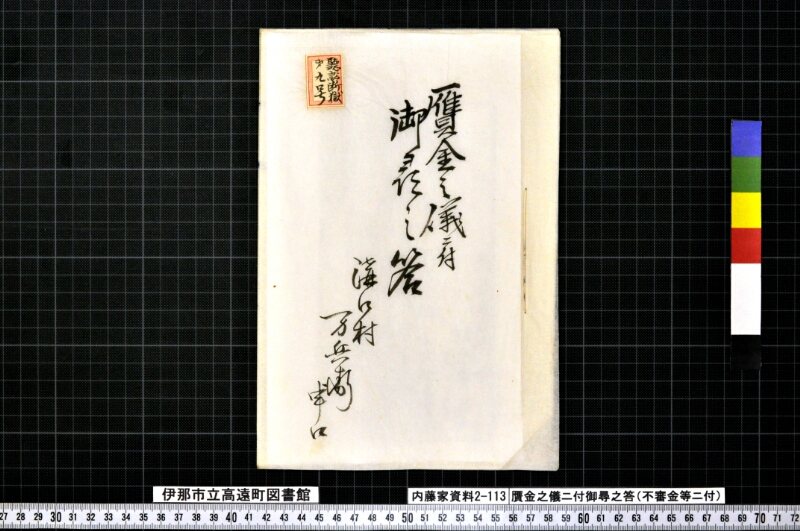 贋金之儀ニ付
御尋之答
溝口村
万兵衛
申口
聴訟断獄
第九号
伊那市立高遠町図書館
内藤家資料2-113
贋金之儀ニ付御尋之答(不審金等ニ付)
27 28 29 30 31 32 33 34 35 36 37 38 39 40 41 42 43 44 45 46 47 48 49 50 51 52 53 54 55 56 57 58 59 60 61 62 63 64 65 66 67 68 69 70 71 72